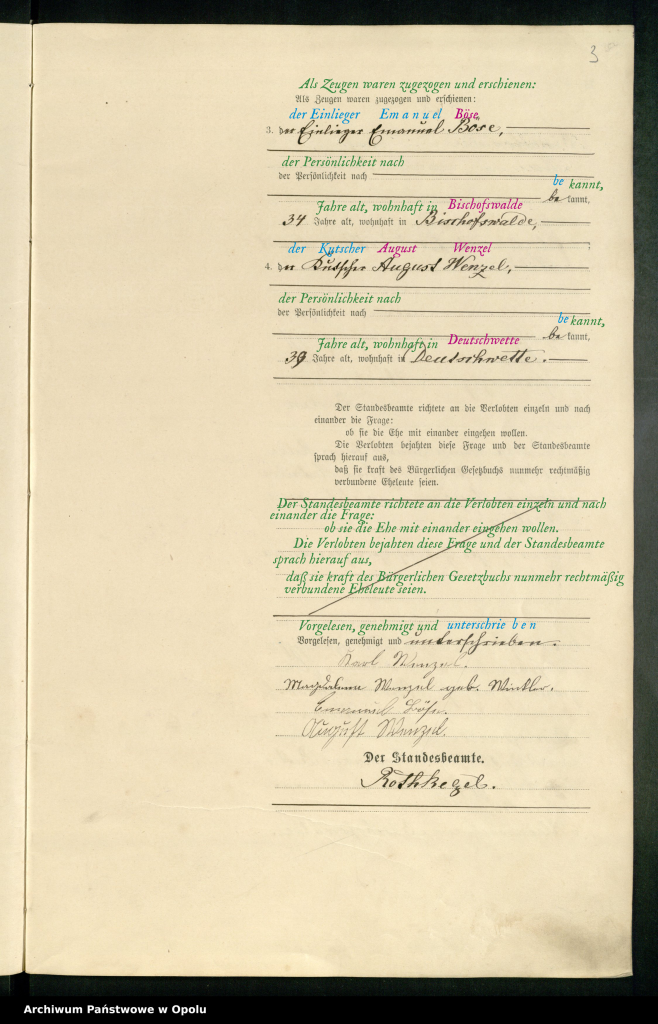 3
Als Zeugen waren zugezogen und erschienen:
Als Zeugen waren zugezogen und erschienen:
der Einlieger Emanuel Böse
3. der Einlieger Emanuel Böse,
der Persönlichkeit nach
der Persönlichkeit nach
be kannt,
be kannt,
Jahre alt, wohnhaft in Bischofswalde
34 Jahre alt, wohnhaft in Bischofswalde,
der Kutscher August Wenzel
4. der Kutscher August Wenzel,
der Persönlichkeit nach
der Persönlichkeit nach
be kannt,
be kannt,
Jahre alt, wohnhaft in Deutschwette
39 Jahre alt, wohnhaft in Deutschwette.
Der Standesbeamte richtete an die Verlobten einzeln und nach
einander die Frage:
ob sie die Ehe mit einander eingehen wollen.
Die Verlobten bejahten diese Frage und der Standesbeamte
sprach hierauf aus,
daß sie kraft des Bürgerlichen Gesetzbuchs nunmehr rechtmäßig
verbundene Eheleute seien.
Der Standesbeamte richtete an die Verlobten einzeln und nach
einander die Frage:
ob sie die Ehe mit einander eingehen wollen.
Die Verlobten bejahten diese Frage und der Standesbeamte
sprach hierauf aus,
daß sie kraft des Bürgerlichen Gesetzbuchs nunmehr rechtmäßig
verbundene Eheleute seien.
Vorgelesen, genehmigt und unterschrie b e n
Vorgelesen, genehmigt und unterschrieben.
Karl Wenzel.
Magdalena Wenzel geb. Winkler.
Emanuel Böse.
August Wenzel.
Der Standesbeamte.
Rothkegel.
Archiwum Państwowe w Opolu